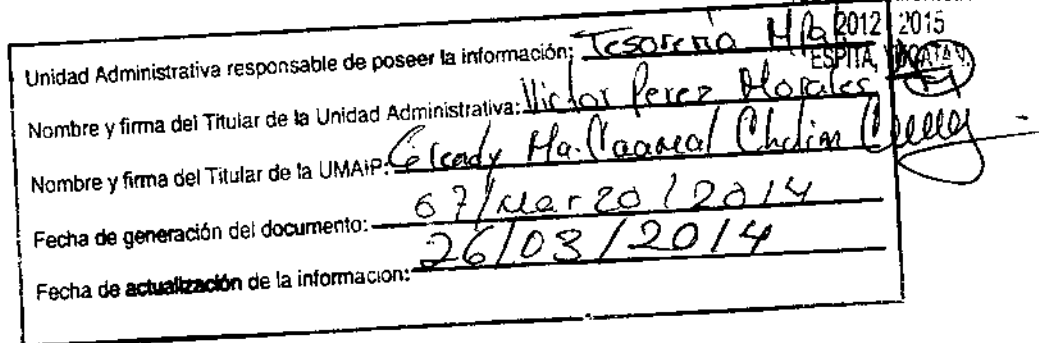 2012 2015
ESPITA,
Unidad Administrativa responsable de poseer la información: Tesoreria Mpal
Nombre y firma del Titular de la Unidad Administrativa: Victor Perez Morales
Nombre y firma del Titular de la UMAIP: Gleady Ma. Caamal Cholim
Fecha de generación del documento: 07/Marzo/2014
Fecha de actualización de la informacion: 26/03/2014